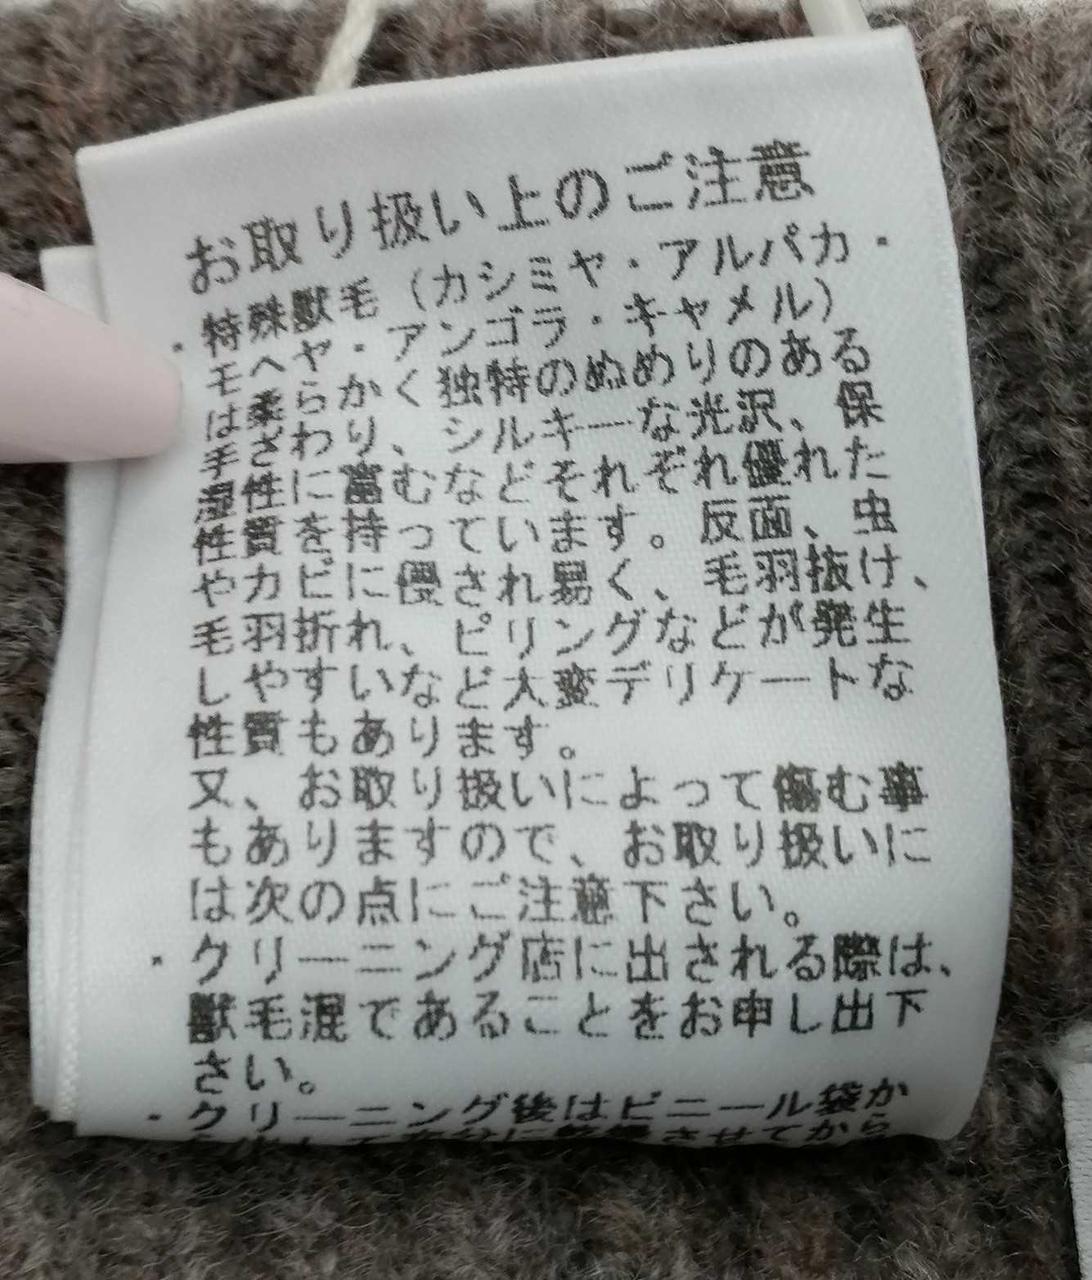 お取り扱い上のご注意
・特殊獣毛（カシミヤ・アルパカ・
モヘヤ・アンゴラ・キャメル）
は柔らかく独特のぬめりのある
手ざわり、シルキーな光沢、保
湿性に富むなどそれぞれ優れた
性質を持っています。反面、虫
やカビに侵され易く、毛羽抜け、
毛羽折れ、ピリングなどが発生
しやすいなど大変デリケートな
性質もあります。
又、お取り扱いによって傷む事
もありますので、お取り扱いに
は次の点にご注意下さい。
・クリーニング店に出される際は、
獣毛混であることをお申し出下
さい。
・クリーニング後はビニール袋か
ら出して充分に乾燥させてから